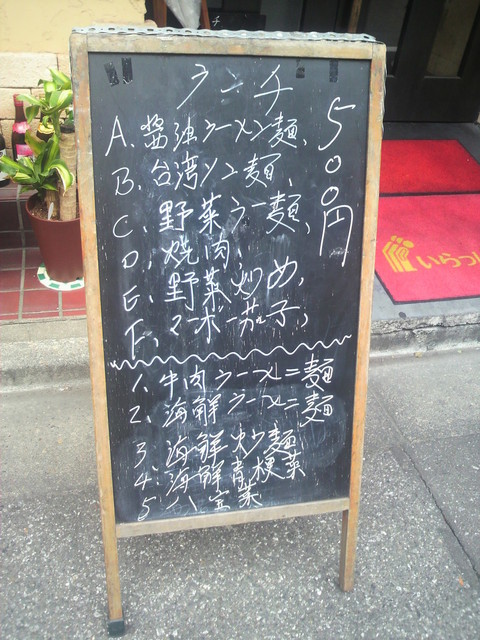 ランチ
500円
A、醤油ラーメン麺、
B、台湾ソユ麺、
C、野菜ラー麺、
D、焼肉、
E、野菜炒め、
F、マーボー茄子、
1、牛肉ラーメニ麺
2、海鮮ラーメニ麺
3、海鮮炒麺
4、海鮮青梗菜
5 八宝菜
いらっし